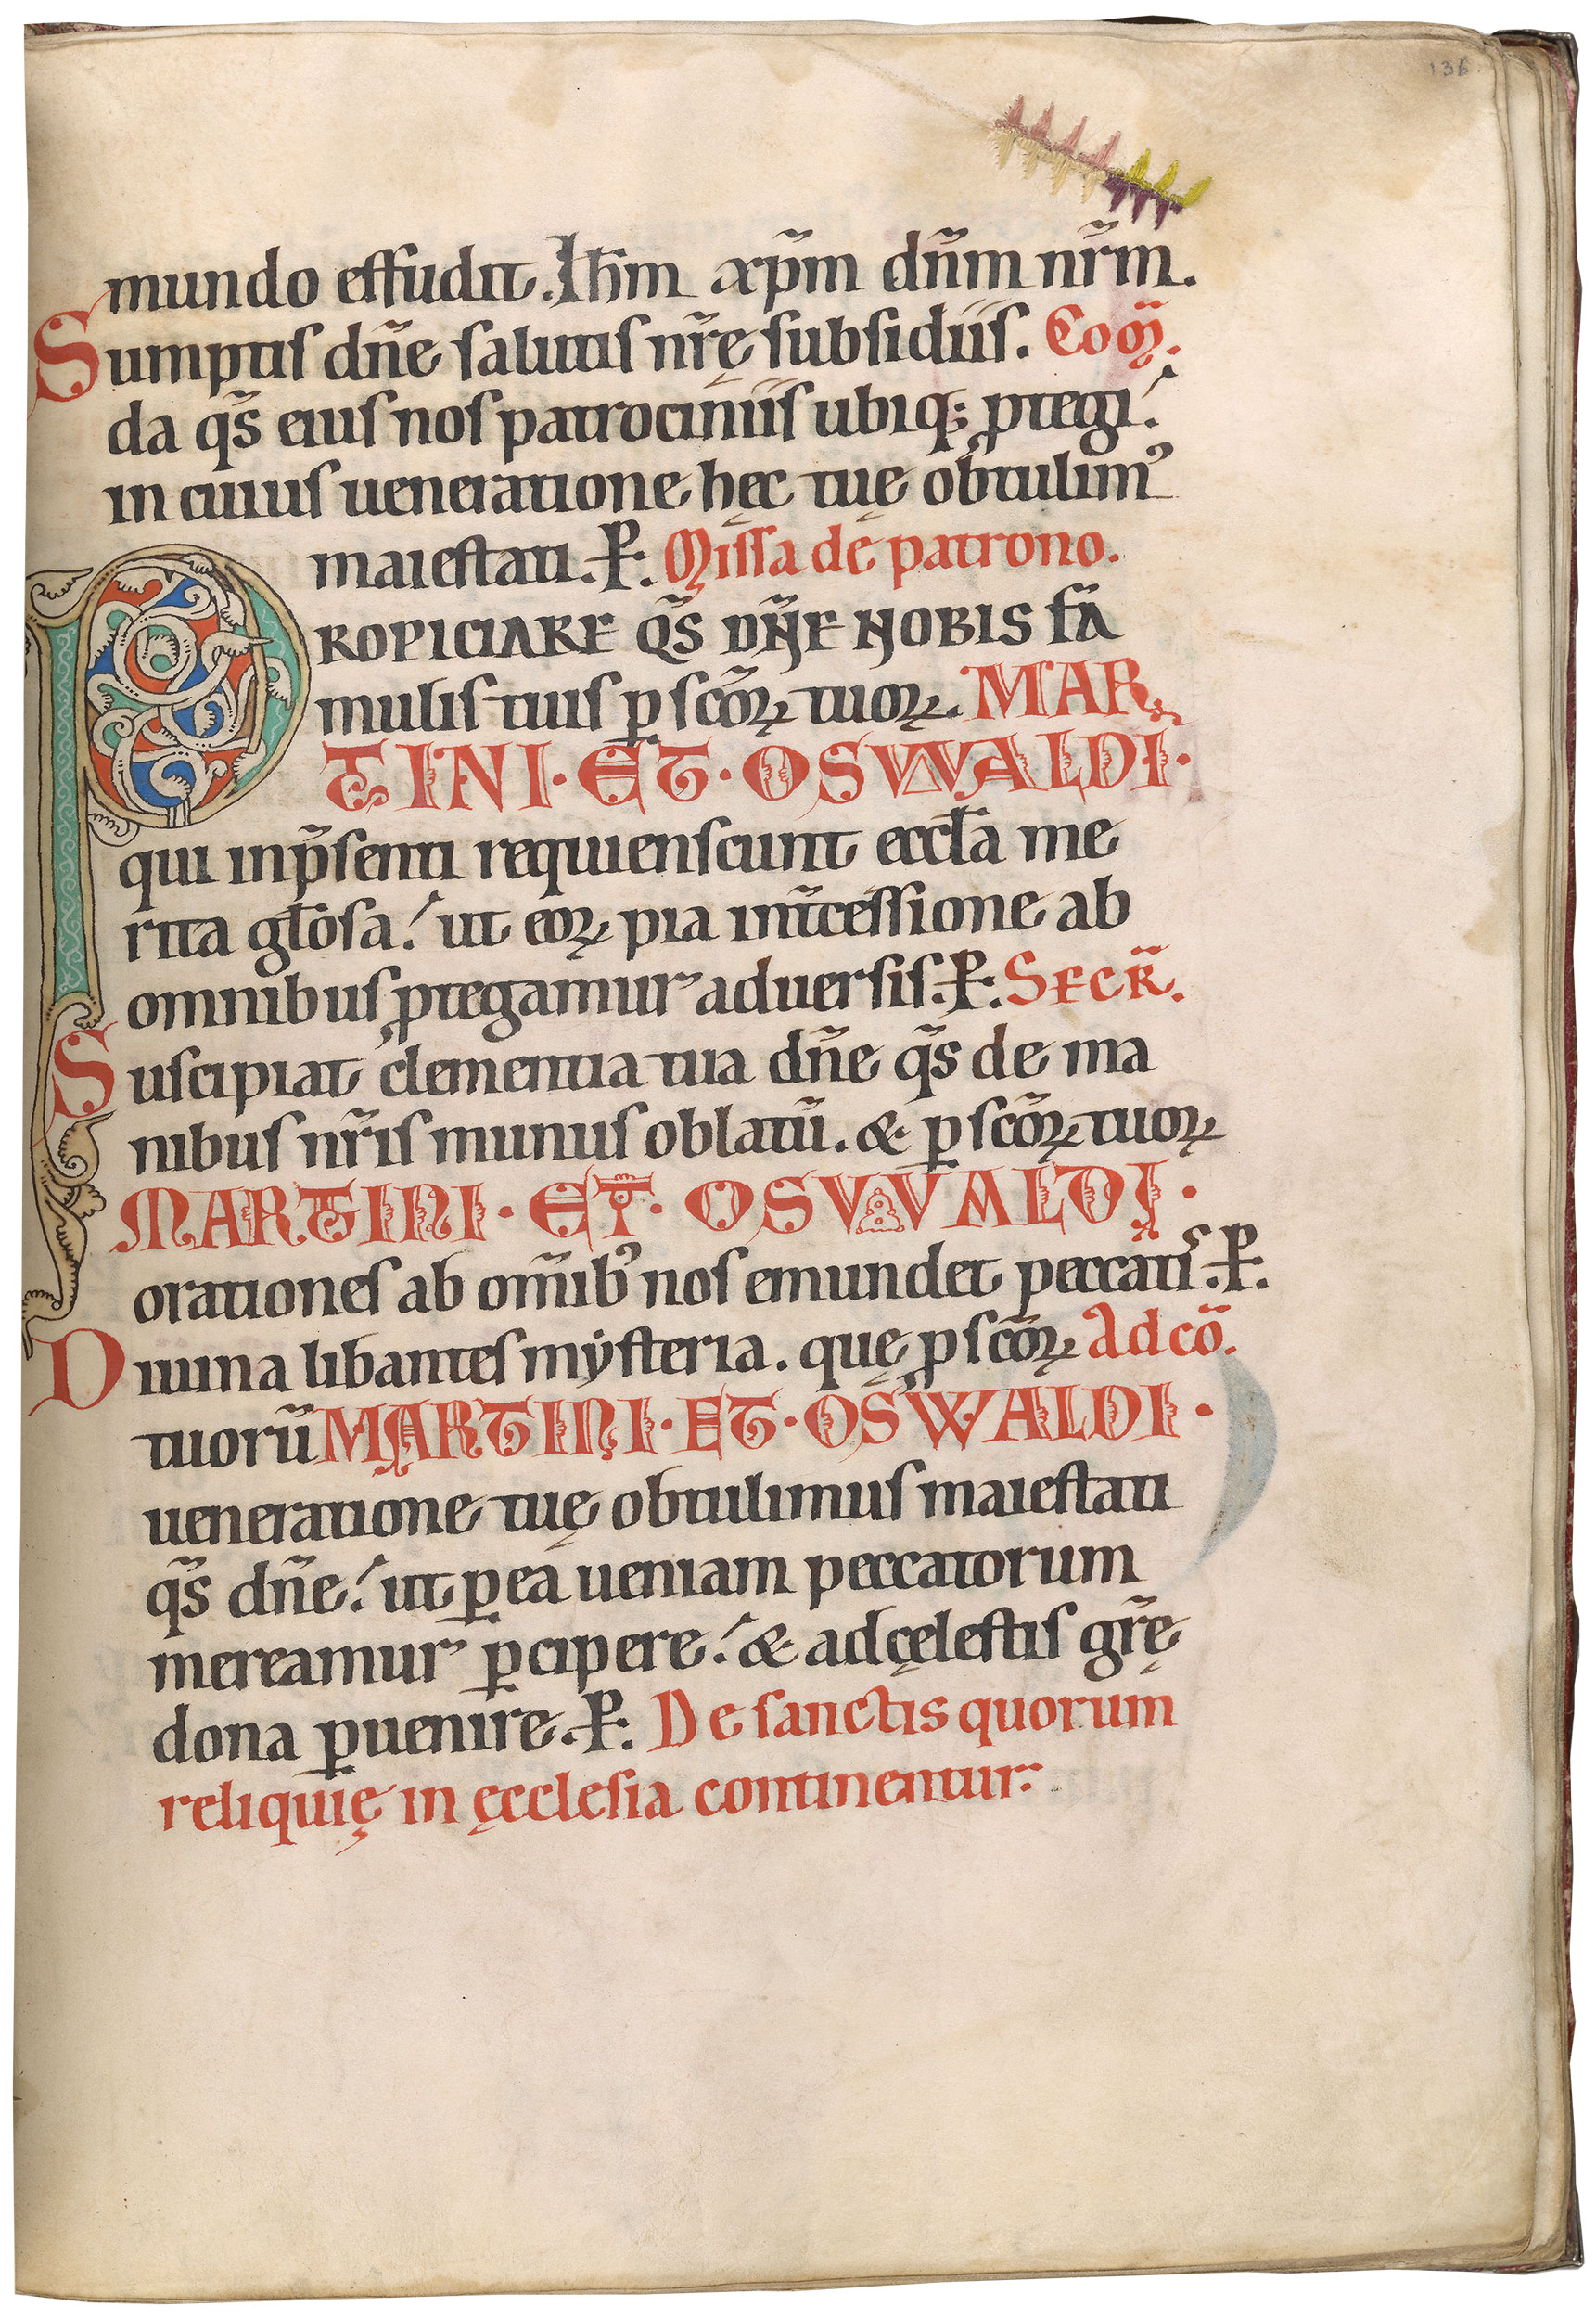 136
mundo effudit. Ihm̃ xp̃m dñm nr̃m.
Sumptis dñe salutis nr̃ę subsidiis. Com̃.
da q̃s eius nos patrociniis ubiq; ꝓtegi.
in cuius ueneratione hęc tuę obtulim᾿
maiestati. P. Missa de patrono.
PROPICIARE Q̃S DÑE NOBIS FÃ
mulis tuis ꝑ scõꝝ tuoꝝ. MAR
TINI · ET · OSWALDI ·
qui in p̃senti requienscunt eccl̃a me
rita gl̃osa. ut eoꝝ pia int̃cessione ab
omnibus ꝓtegamur aduersis. P. SECR̃.
Suscipiat clementia tua dñe q̃s de ma
nibus nr̃is munus oblatũ. & ꝑ scõꝝ tuoꝝ
MARTINI · ET · OSVVALDI ·
orationes ab om̃ib᾿ nos emundet peccatis. P.
Diuina libantes mẏsteria. quę ꝓ scõꝝ Ad cõ.
tuorũ MARTINI · ET · OSWALDI ·
ueneratione tuę obtulimus maiestati
q̃s dñe. ut ꝑ eã ueniam peccatorum
mereamur ꝑcipere. & ad cęlestis gr̃ę
dona ꝑuenire. P. De sanctis quorum
reliquię in ęcclesia continentur.